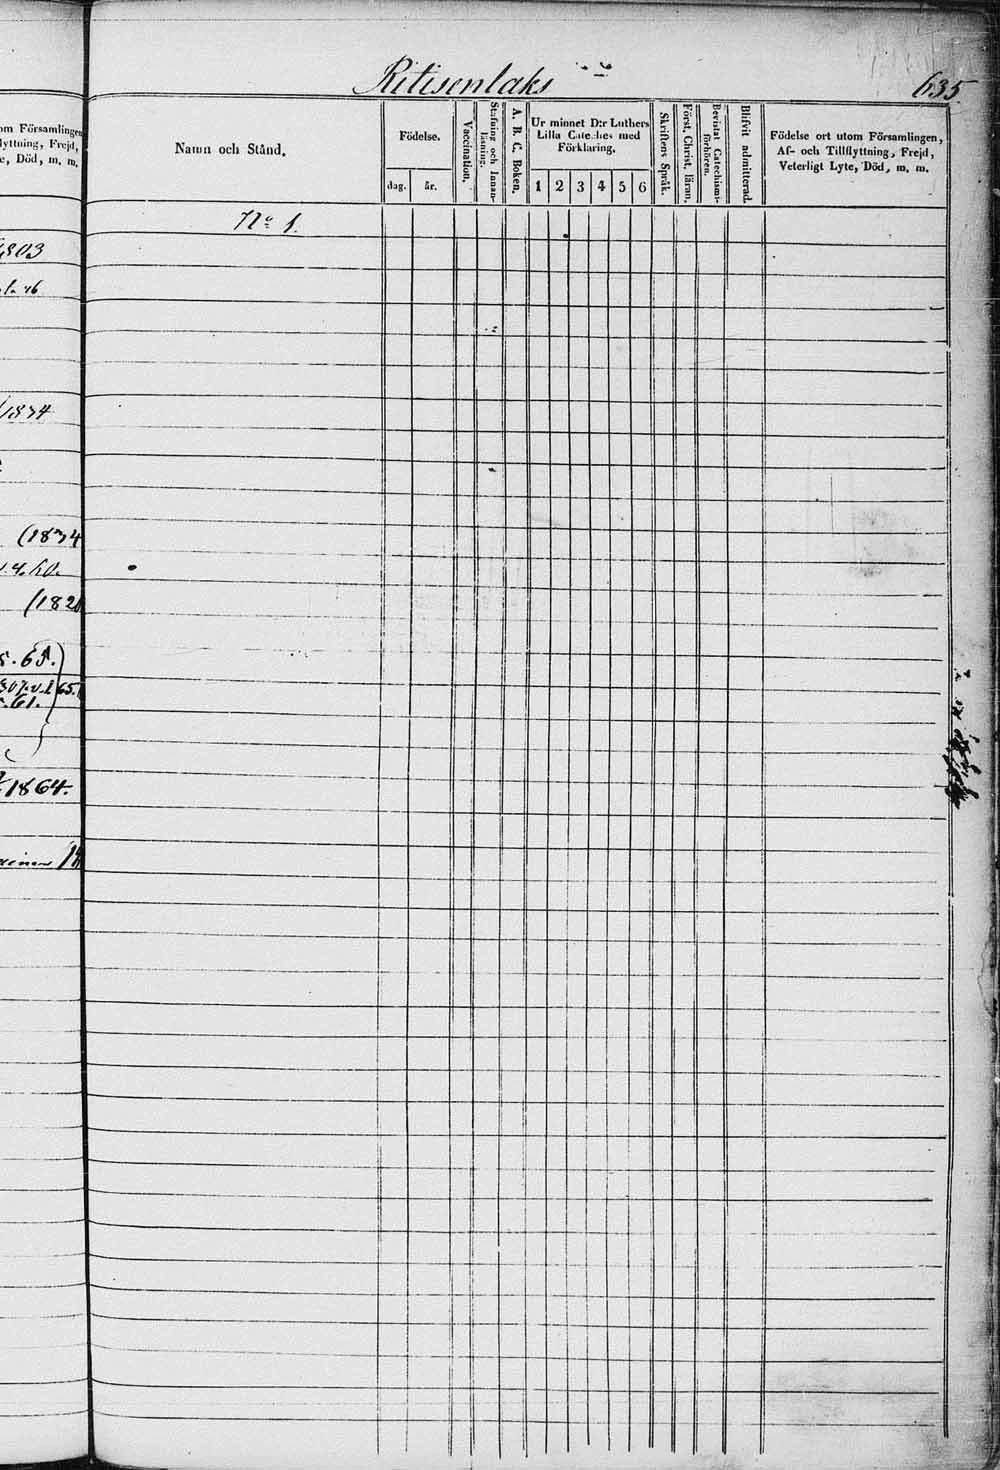 Ritisenlaks
635.
om Församlingen
lyttning, Frejd,
e, Död, m. m.
1803
1834
(1834
(182
s. 65.)
65.
.61.
1864.
Namn och Stånd.
Födelse.
dag.
år.
Vaccination.
Stafning och Innan-
läsning.
A. B. C. Boken.
Ur minnet D:r Luthers
Lilla Cateches med
Förklaring.
1 2 3 4 5 6
Skriftens Språk.
Först. Christ. läran.
Bevistat Catechismi-
förhören.
Blifvit admitterad.
Födelse ort utom Församlingen,
Af- och Tillflyttning, Frejd,
Veterligt Lyte, Död, m. m.
No 1.